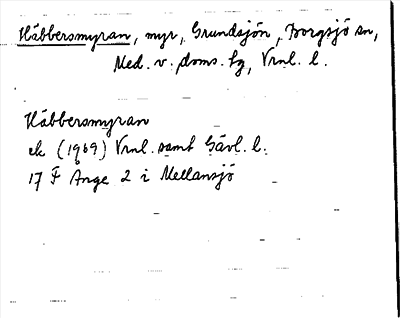 Häbbersmyran, myr, Grundsjön, Borgsjö sn,
Med. v. doms. hg, Vrnl. l.
Häbbersmyran
ek (1969) Vrnl. samt Gävl. l.
17 F Ånge 2 i Mellansjö